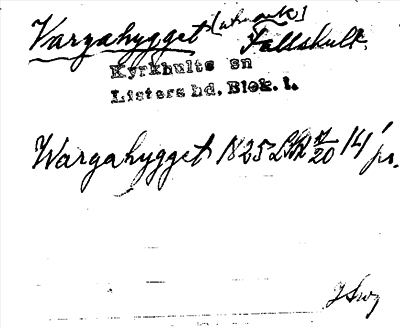 Vargahygget (utmark) Fallshult.
Kyrkhults sn
Listers hd, Blek. l.
Wargahygget 1825 LSA 7/20 14'